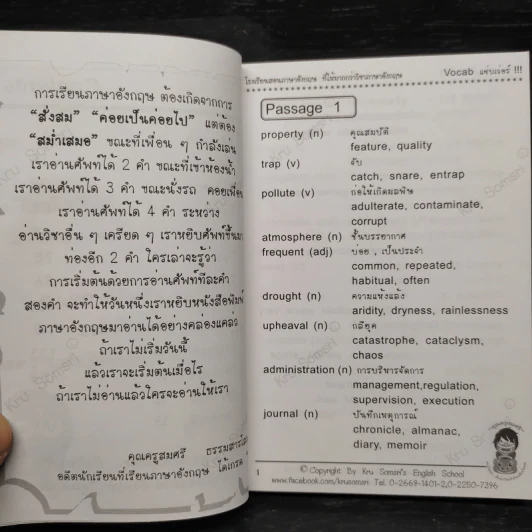 การเรียนภาษาอังกฤษ ต้องเกิดจากการ
“สั่งสม” “ค่อยเป็นค่อยไป” แต่ต้อง
“สม่ำเสมอ” ขณะที่เพื่อน ๆ กำลังเล่น
เราอ่านศัพท์ได้ 2 คำ ขณะที่เข้าห้องน้ำ
เราอ่านศัพท์ได้ 3 คำ ขณะนั่งรถ คอยเพื่อน
เราอ่านศัพท์ได้ 4 คำ ระหว่าง
อ่านวิชาอื่น ๆ เครียด ๆ เราหยิบศัพท์ขึ้นมา
ท่องอีก 2 คำ ใครเล่าจะรู้ว่า
การเริ่มต้นด้วยการอ่านศัพท์ทีละคำ
สองคำ จะทำให้วันหนึ่งเราหยิบหนังสือพิมพ์
ภาษาอังกฤษมาอ่านได้อย่างคล่องแคล่ว
ถ้าเราไม่เริ่มวันนี้
แล้วเราจะเริ่มต้นเมื่อไร
ถ้าเราไม่อ่านแล้วใครจะอ่านให้เรา
คุณครูสมศรี
อดีตนักเรียนที่เรียนภาษาอังกฤษ ได้เกรด
โรงเรียนสอนภาษาอังกฤษ ที่ให้มากกว่าวิชาภาษาอังกฤษ Vocab แซ่บเว่อร์ !!!
Passage 1
property (n) คุณสมบัติ
feature, quality
trap (v) จับ
catch, snare, entrap
pollute (v) ก่อให้เกิดมลพิษ
adulterate, contaminate,
corrupt
atmosphere (n) ชั้นบรรยากาศ
frequent (adj) บ่อย , เป็นประจำ
common, repeated,
habitual, often
drought (n) ความแห้งแล้ง
aridity, dryness, rainlessness
upheaval (n) กลียุค
catastrophe, cataclysm,
chaos
administration (n) การบริหารจัดการ
management,regulation,
supervision, execution
journal (n) บันทึกเหตุการณ์
chronicle, almanac,
diary, memoir
1 © Copyright By Kru Somsri's English School
www.facebook.com/krusomsri Tel. 0-2669-1401-2,0-2250-7396